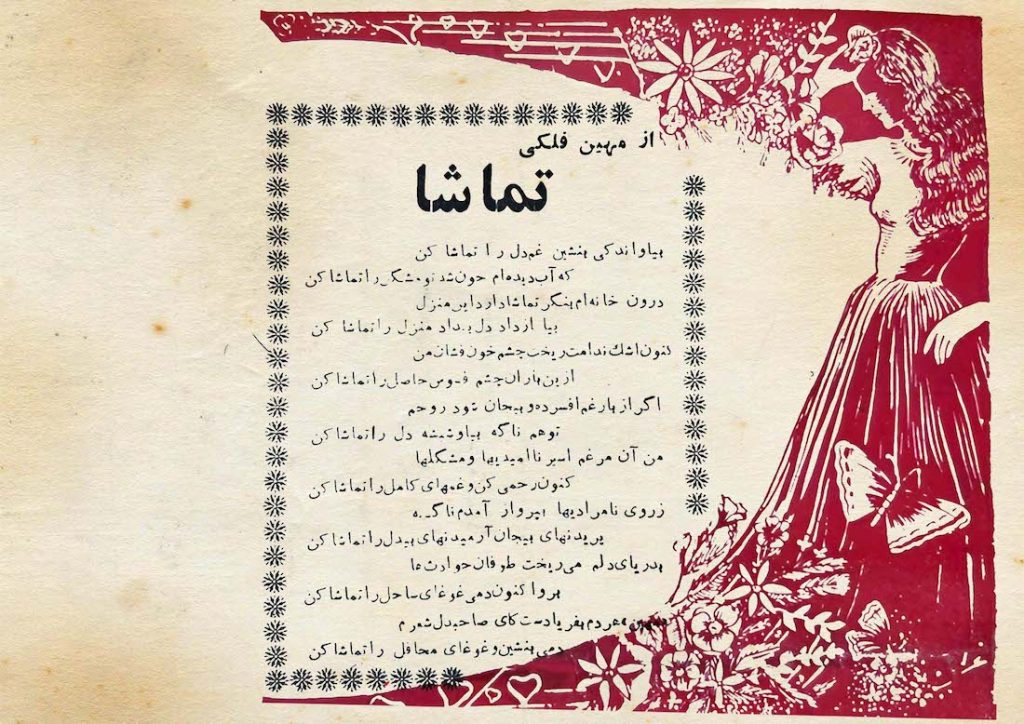 از مهین فلکی
تماشا
بیا و اندکی بنشین غم دل را تماشا کن
که آب دیده‌ام خون شد تو مشکل را تماشا کن
درون خانه‌ام بنگر تماشا دارد این منزل
بیا از داد دل بیداد منزل را تماشا کن
کنون اشک ندامت ریخت چشم خون فشان من
ازین باران چشم حاصل را تماشا کن
اگر از بار غم افسرده و بیجان شود روحم
تو هم ناگه بیا و دل را تماشا کن
من آن مرغم اسیر ناامیدیها و مشکلها
کنون رحمی کن و غمهای کامل را تماشا کن
ز روی نامرادیها بپرواز آمدم ناگه
پریدنهای بیجان آرمیدنهای بیدل را تماشا کن
بدریای دلم می‌ریخت طوفان حوادث‌ها
برو اکنون دمی غوغای ساحل را تماشا کن
مردم بفریادست کای صاحبدل شعرم
دمی بنشین و غوغای محافل را تماشا کن